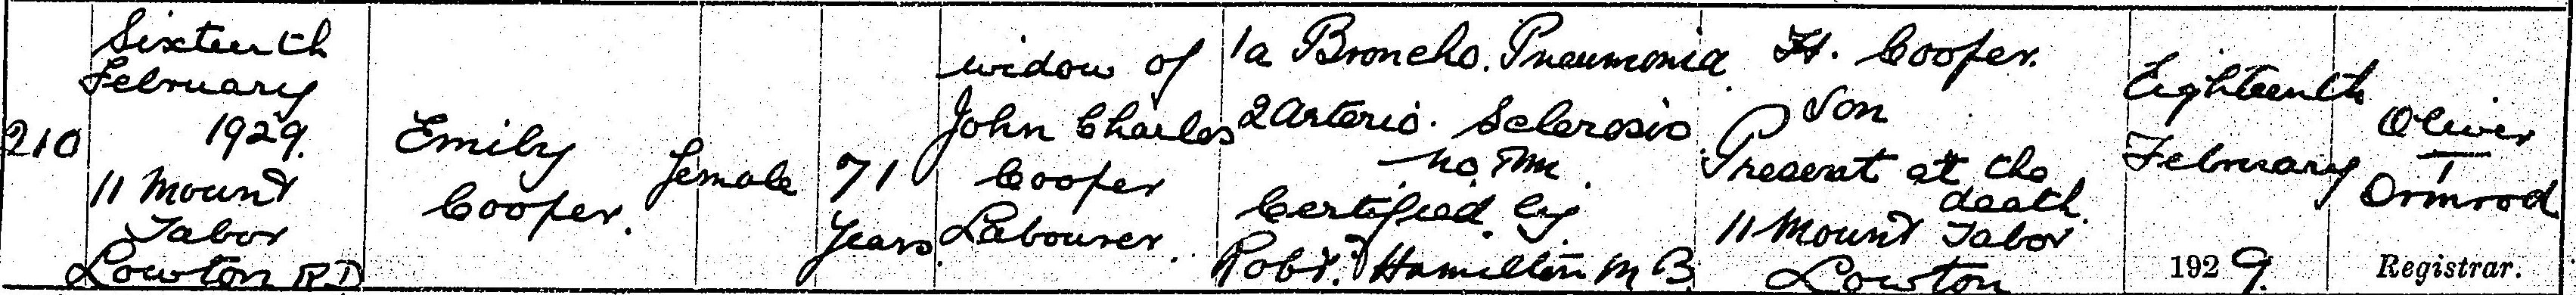 210
Sixteenth
February
1929.
11 Mount
Tabor
Lowton R.D
Emily
Cooper.
female
71
years
widow of
John Charles
Cooper
Labourer.
1a Broncho. Pneumonia
2 Arterio. Sclerosis
no P.M.
Certified by
Robt. Hamilton M B.
H. Cooper.
Son
Present at the
death.
11 Mount Tabor
Lowton
Eighteenth
February
1929.
Oliver
Ormrod
Registrar.